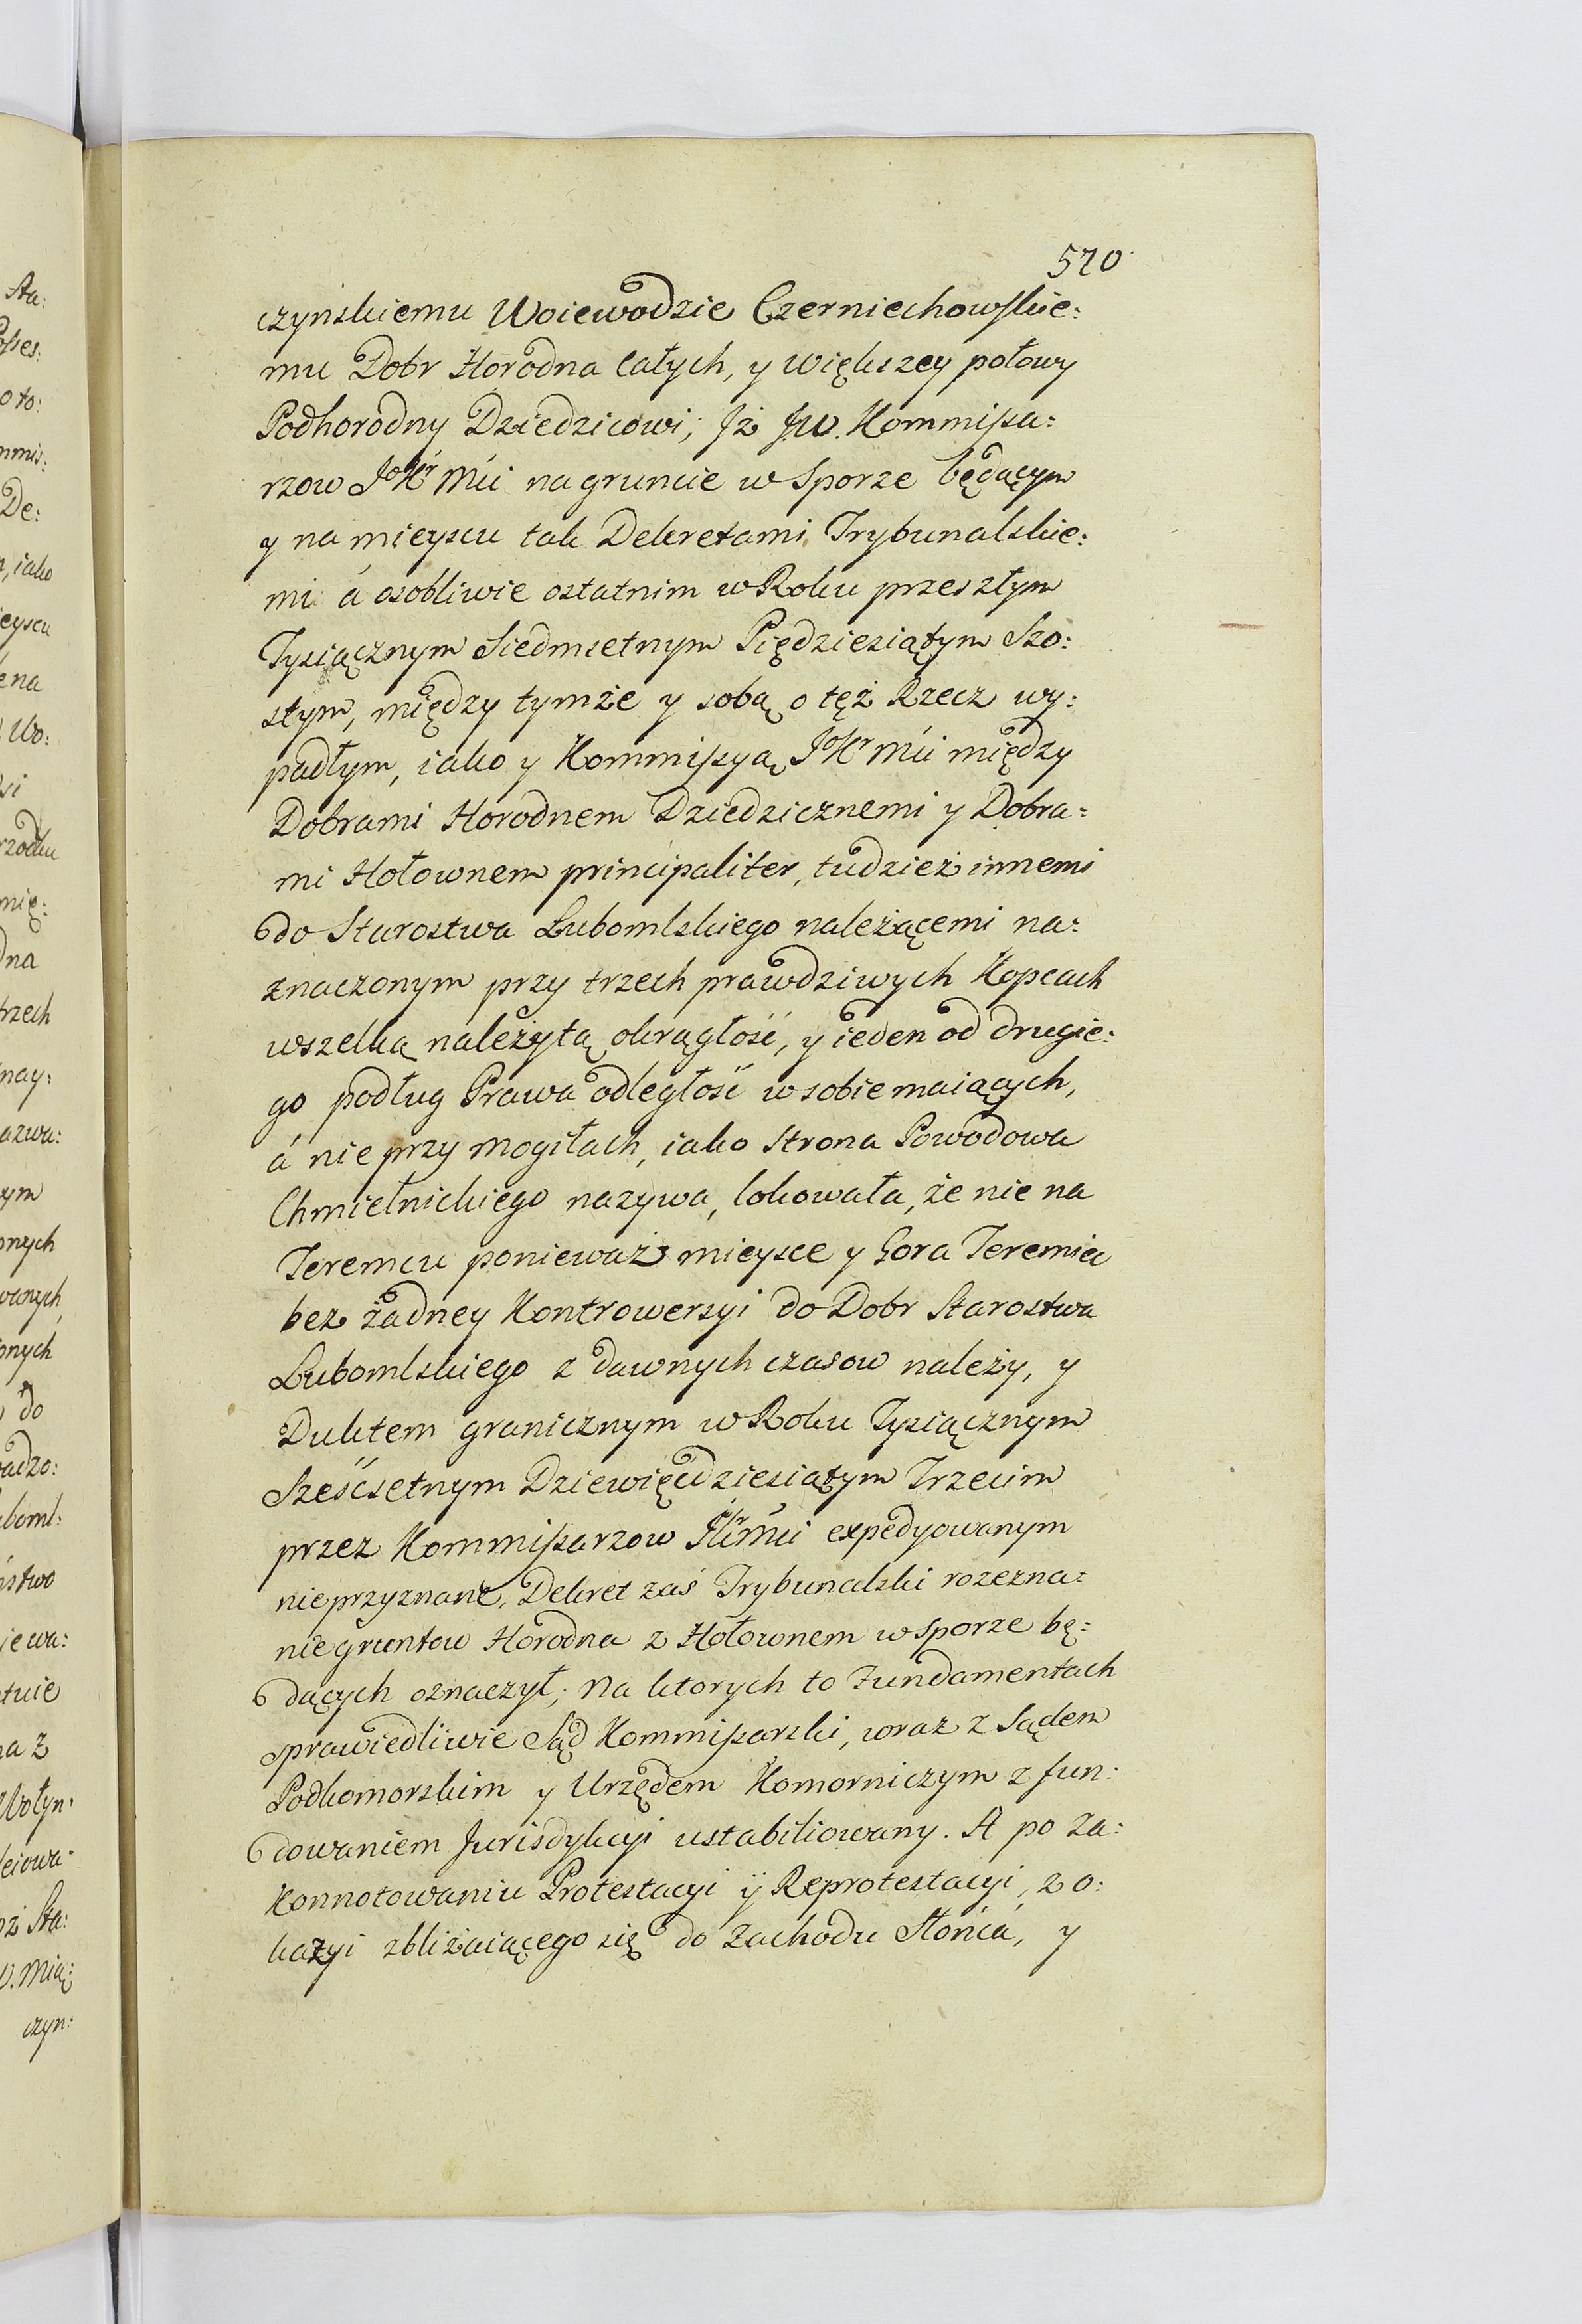 570
czynskiemu Woiewodzie Czerniechowskie:
mu Dobr Horodna Całych, y większey połowy
Podhorodny Dziedzicowi; Jż JW. Kommissa:
rzow JoKr Mci na gruncie w Sporze będącym
y na mieyscu tak Dekretami Trybunalskie:
mi á osobliwie ostatnim w Roku przeszłym
Tysiącznym Siedmsetnym Pięдziesiątym Szo:
stym, między tymże y sobą o tęż Rzecz wy:
padłym, iako y Kommissyą JoKr Mci między
Dobrami Horodnem Dziedzicznemi y Dobra:
mi Hołownem principaliter, tudzież innemi
do Starostwa Lubomlskiego należącemi na:
znaczonym przy trzech prawdziwych Kopcach
wszelką należytą okrągłość, y ieden od drugie:
go podług Prawa odległość w sobie maiących,
á nie przy Mogiłach, iako Strona Powodowa
Chmielnickiego nazywa, lokowała, że nie na
Teremcu ponieważ mieysce y Gora Teremiec
bez żadney Kontrowersyi do Dobr Starostwa
Lubomlskiego z dawnych czasow należy, y
Duktem granicznym w Roku Tysiącznym
Sześćsetnym Dziewięćdziesiątym Trzecim
przez Kommissarzow JKr Mci expedyowanym
nieprzyznane, Dekret zaś Trybunalski rozezna:
nie gruntow Horodna z Hołownem w sporze bę:
dących oznaczył; Na ktorych to Fundamentach
sprawiedliwie Sąd Kommissarski, wraz z Sądem
Podkomorskim y Urzędem Komorniczym z fun:
dowaniem Jurisdykcyi ustabiliowany. A po Za:
Konnotowaniu Protestacyi ÿ Reprotestacyi, z o:
kazyi zbliżaiącego się do Zachodu Słońca, y
Sta:
oto:
De:
iako
eyscu
na
Wo:
mię:
dna
trzech
nay:
azwa:
ym
onych
wanych
onych
do
adzo:
uboml:
ństwo
iewa:
tuie
na z
Wołyn:
eiowa:
Sta:
W. Mią:
czyn: